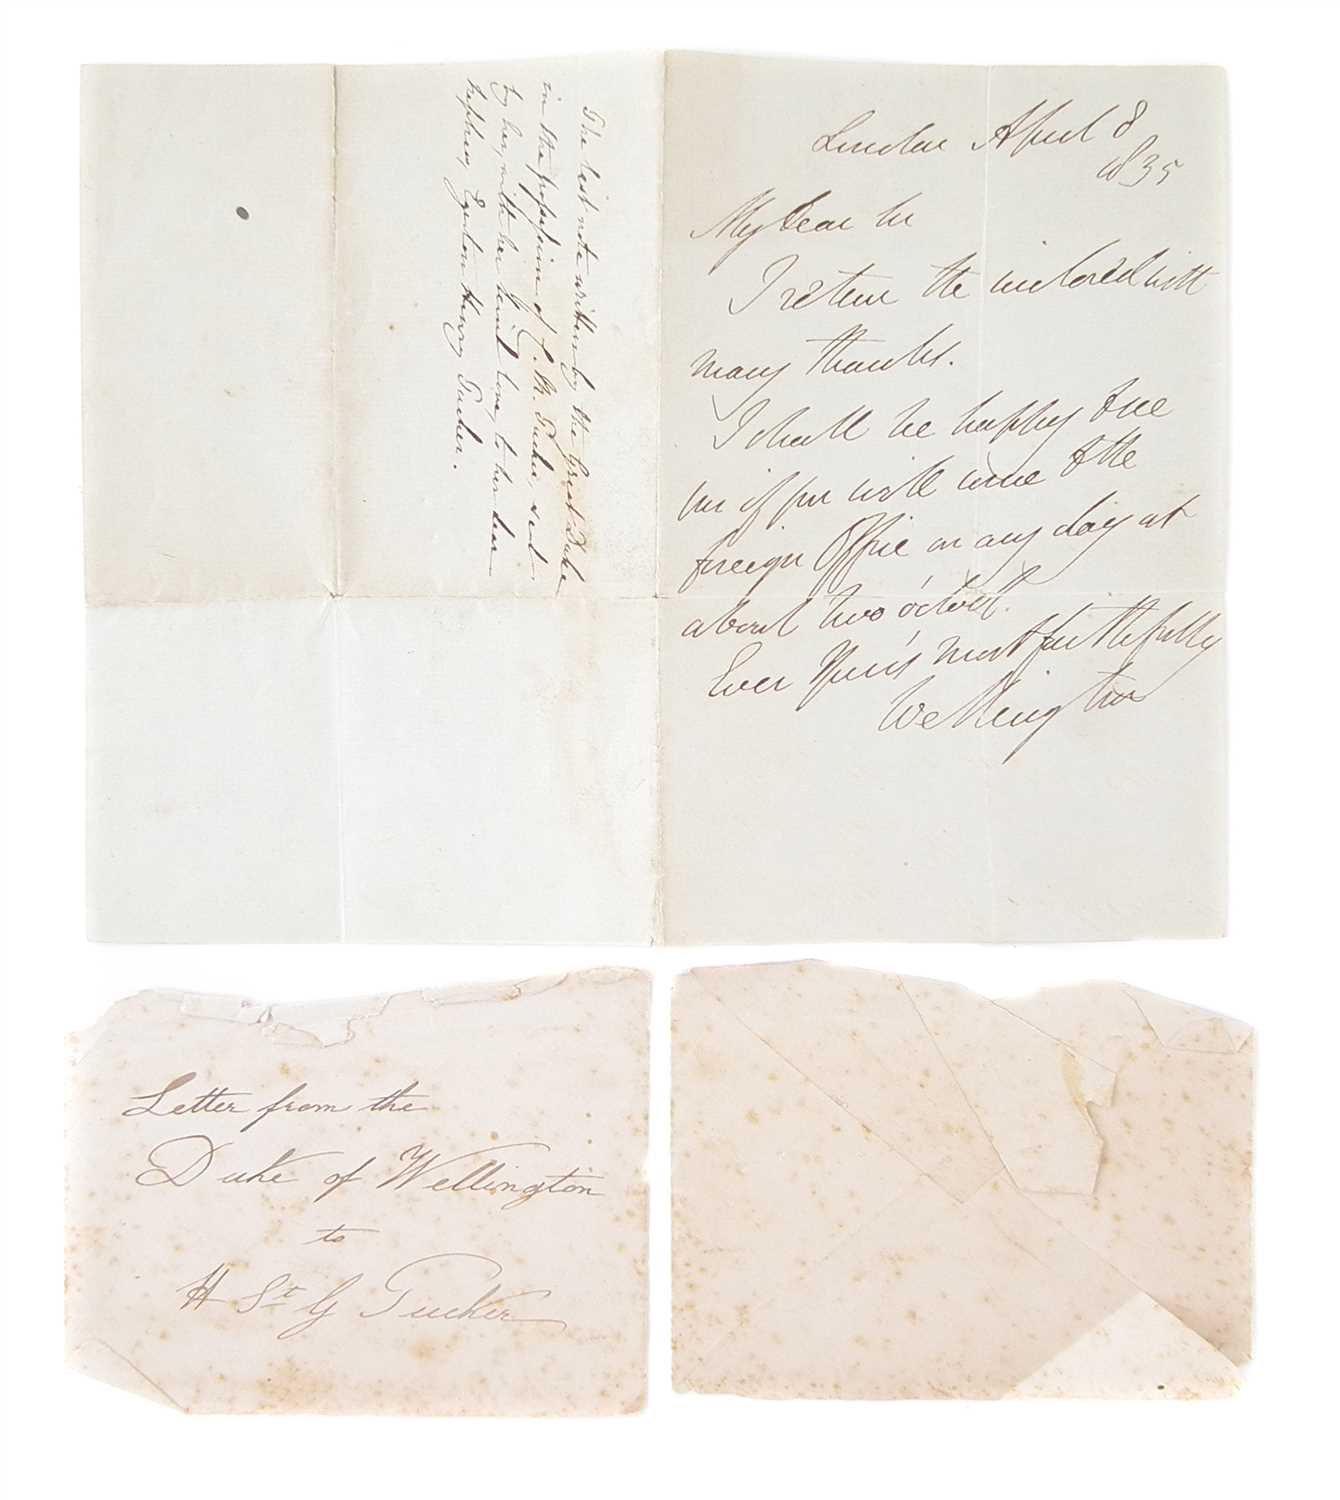 London April 8
1835
My Dear Sir
I return the inclosed with
many thanks.
I shall be happy to see
you if you will come to the
foreign Office on any day at
about two o'clock.
Ever Yours most faithfully
Wellington
The last note written by the Great Duke
in the possession of C. M. Tucker, sent
by her, with her kind love, to her dear
nephew, Egerton Henry Tucker.
Letter from the
Duke of Wellington
to
H St G Tucker